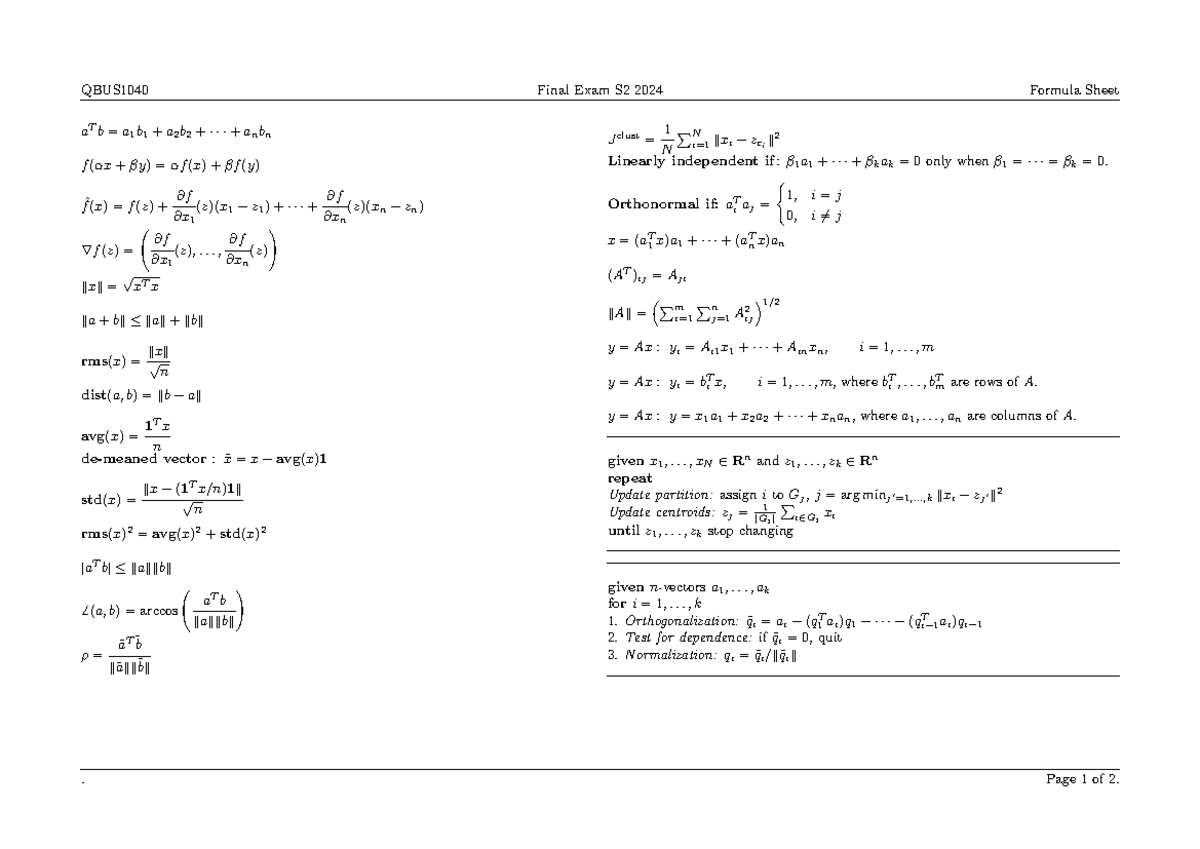 QBUS1040 Final Exam S2 2024 Formula Sheet
aᵀb = a₁b₁ + a₂b₂ + ··· + aₙbₙ
f(αx + βy) = αf(x) + βf(y)
f̂(x) = f(z) + ∂f/∂x₁(z)(x₁ − z₁) + ··· + ∂f/∂xₙ(z)(xₙ − zₙ)
∇f(z) = (∂f/∂x₁(z), ..., ∂f/∂xₙ(z))
‖x‖ = √(xᵀx)
‖a + b‖ ≤ ‖a‖ + ‖b‖
rms(x) = ‖x‖/√n
dist(a, b) = ‖b − a‖
avg(x) = 1ᵀx/n
de-meaned vector : x̃ = x − avg(x)1
std(x) = ‖x − (1ᵀx/n)1‖/√n
rms(x)² = avg(x)² + std(x)²
|aᵀb| ≤ ‖a‖‖b‖
∠(a, b) = arccos(aᵀb/‖a‖‖b‖)
ρ = ãᵀb̃/‖ã‖‖b̃‖
J^clust = 1/N ∑_{i=1}^N ‖x_i − z_{c_i}‖²
Linearly independent if: β₁a₁ + ··· + βₖaₖ = 0 only when β₁ = ··· = βₖ = 0.
Orthonormal if: a_iᵀa_j = { 1, i = j
0, i ≠ j
x = (a₁ᵀx)a₁ + ··· + (aₙᵀx)aₙ
(Aᵀ)_{ij} = A_{ji}
‖A‖ = (∑_{i=1}^m ∑_{j=1}^n A_{ij}²)^{1/2}
y = Ax : y_i = A_{i1}x₁ + ··· + A_{in}xₙ, i = 1, ..., m
y = Ax : y_i = b_iᵀx, i = 1, ..., m, where b_iᵀ, ..., b_mᵀ are rows of A.
y = Ax : y = x₁a₁ + x₂a₂ + ··· + xₙaₙ, where a₁, ..., aₙ are columns of A.
given x₁, ..., x_N ∈ Rⁿ and z₁, ..., zₖ ∈ Rⁿ
repeat
Update partition: assign i to G_j, j = arg min_{j′=1,...,k} ‖x_i − z_{j′}‖²
Update centroids: z_j = 1/|G_j| ∑_{i∈G_j} x_i
until z₁, ..., zₖ stop changing
given n-vectors a₁, ..., aₖ
for i = 1, ..., k
1. Orthogonalization: q̃_i = a_i − (q₁ᵀa_i)q₁ − ··· − (q_{i−1}ᵀa_i)q_{i−1}
2. Test for dependence: if q̃_i = 0, quit
3. Normalization: q_i = q̃_i/‖q̃_i‖
. Page 1 of 2.